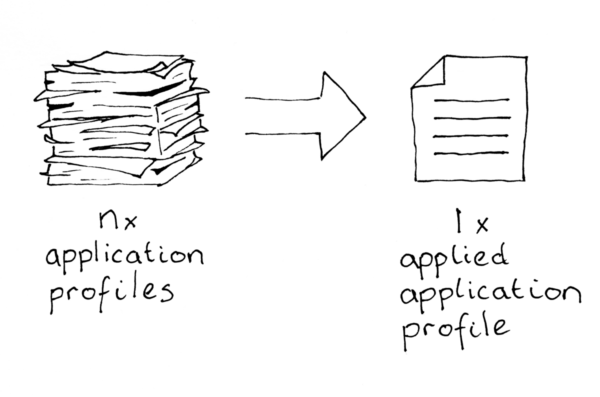 nx
application
profiles
1 x
applied
application
profile